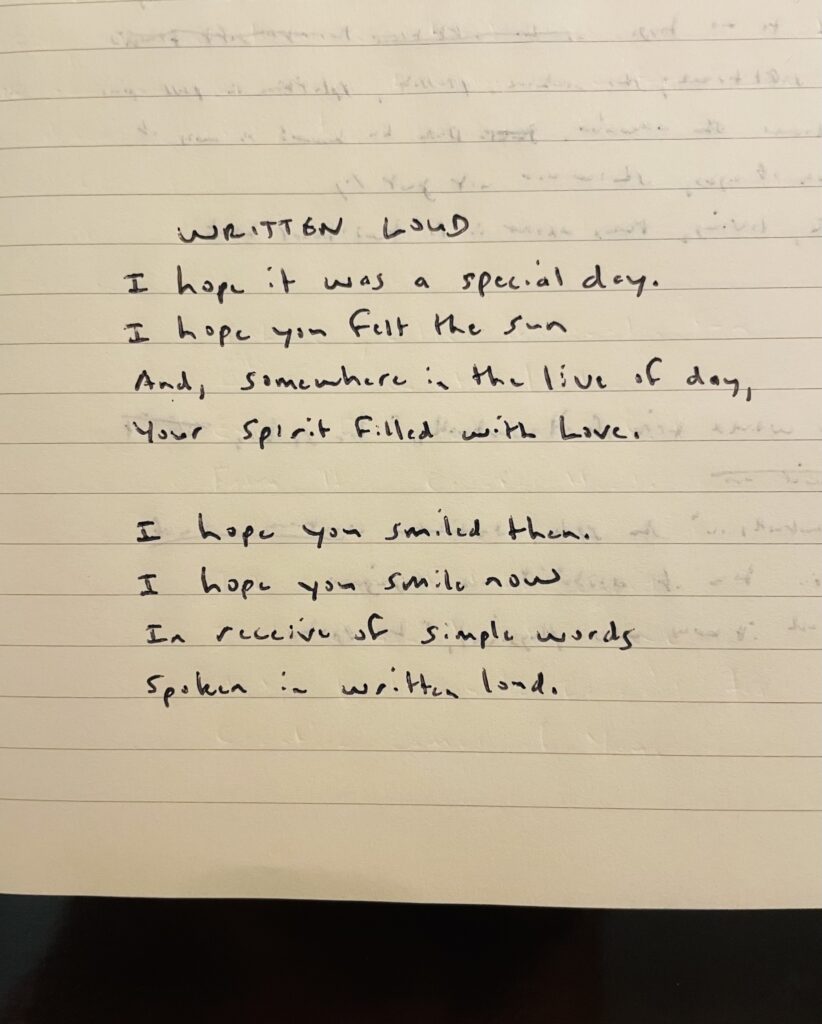 WRITTEN LOUD
I hope it was a special day.
I hope you felt the sun
And, somewhere in the live of day,
Your spirit filled with love.
I hope you smiled then.
I hope you smile now
In receive of simple words
Spoken in written loud.